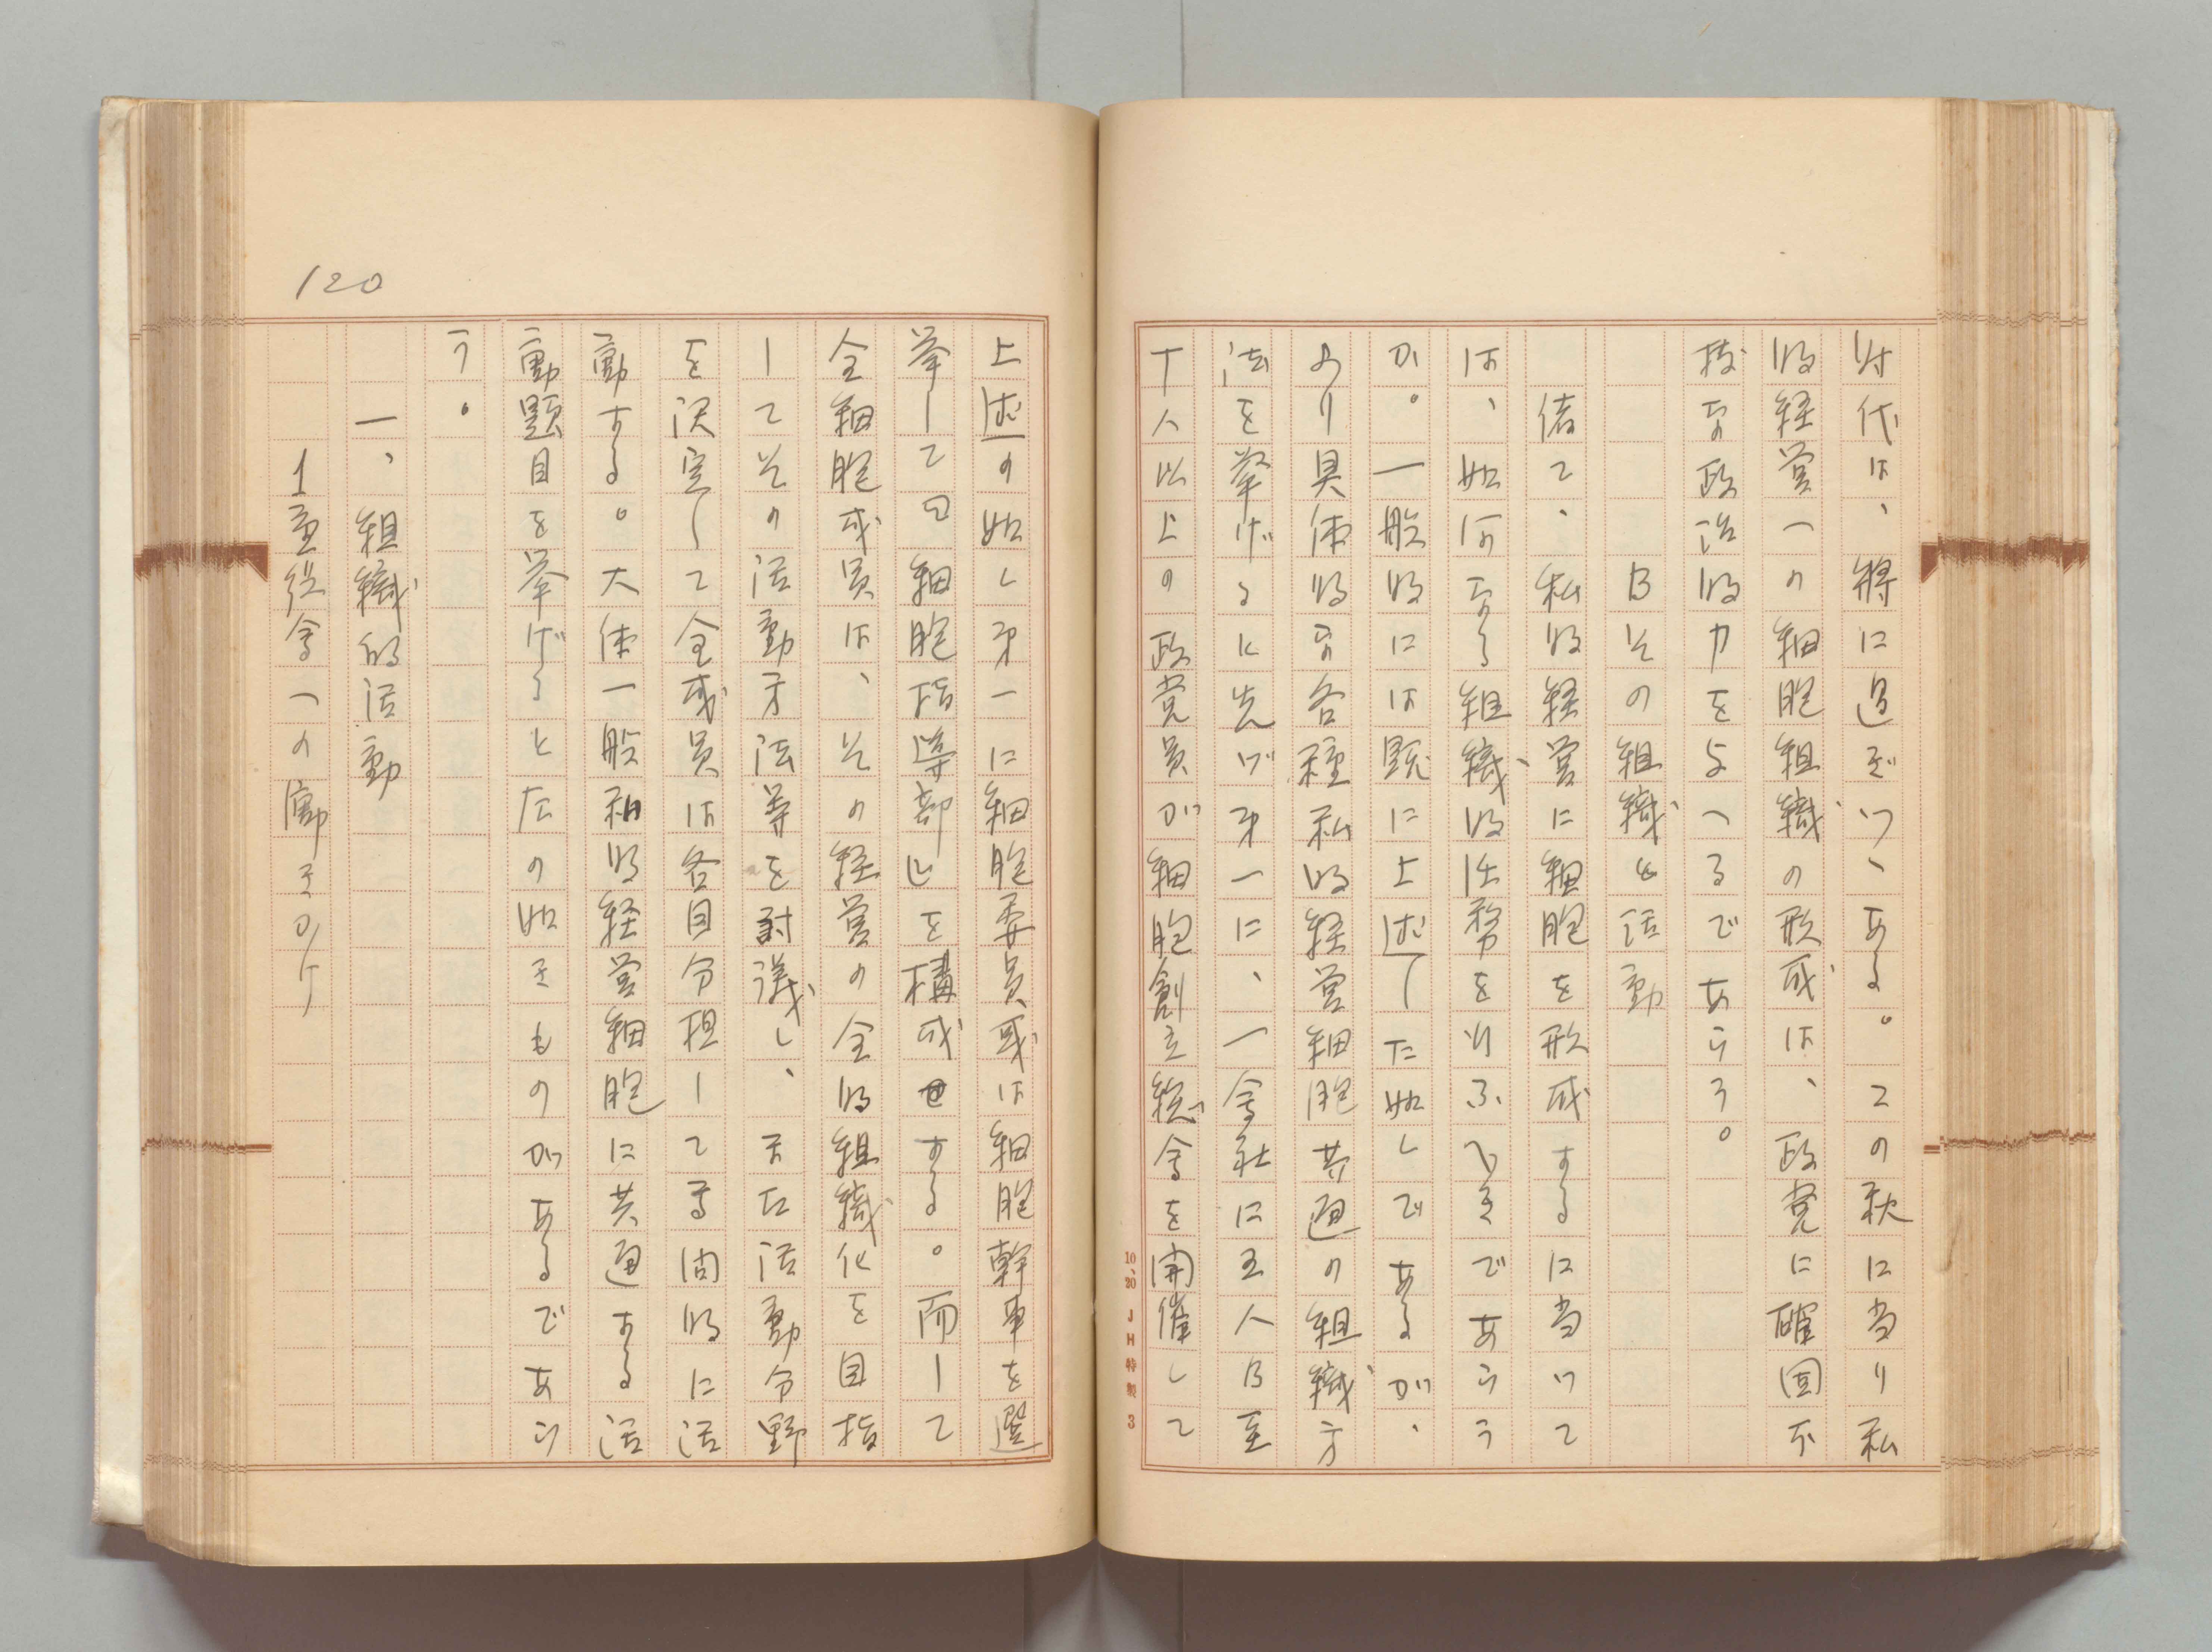 時代は、將に過ぎつゝある。この秋に当り私
的経営への細胞組織の形成は、政党に確固不
抜なの政治的力を与へるであらう。
B その組織と活動
偖て、私的経営に細胞を形成するに当つて
は、如何なる組織的任務を行ふべきであらう
か。一般的には既に上述した如しであるが、
より具体的なの各種私的経営細胞共通の組織方
法を挙げるに先づ第一に、一会社に五人B至
十人以上の政党員が細胞創立総会を開催して
10,20 JH特製 3
120
上述の如し第一に細胞委員或は細胞幹事を選
挙して曰細胞指導部㔫を構成せする。而して
全細胞成員は、その経営の全的組織化を目指
してその活動方法等を討議し、亦左活動分野
を決定して全成員は各自分担して専問的に活
動する。大体一般私的経営細胞に共通する活
動題目を挙げると左の如きものがあるであら
う。
一、組織的活動
1 重役会への働きかけ